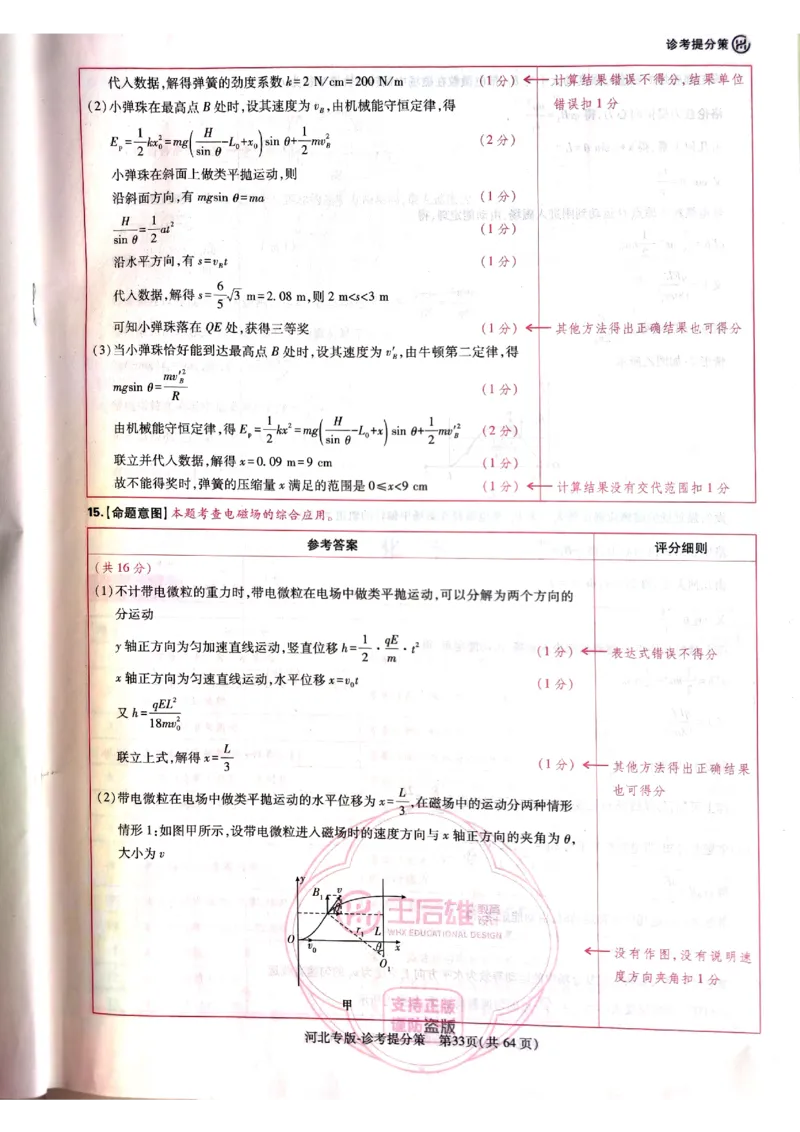 诊考提分策
代入数据,解得弹簧的劲度系数 k=2 N/cm=200 N/m (1分) 计算结果错误不得分,结果单位错误扣1分
(2)小弹珠在最高点 B 处时,设其速度为 v_B,由机械能守恒定律,得
E_p=1/2 kx_0^2=mg(H/sin θ-L_0+x_0)sin θ+1/2 mv_B^2 (2分)
小弹珠在斜面上做类平抛运动,则
沿斜面方向,有 mgsin θ=ma (1分)
H/sin θ=1/2 at^2 (1分)
沿水平方向,有 s=v_Bt (1分)
代入数据,解得 s=6/5 √3 m=2.08 m,则 2 m<s<3 m
可知小弹珠落在 QE 处,获得三等奖 (1分) 其他方法得出正确结果也可得分
(3)当小弹珠恰好能到达最高点 B 处时,设其速度为 v'_B,由牛顿第二定律,得
mgsin θ=mv'_B^2/R (1分)
由机械能守恒定律,得 E_p=1/2 kx^2=mg(H/sin θ-L_0+x)sin θ+1/2 mv'_B^2 (2分)
联立并代入数据,解得 x=0.09 m=9 cm (1分)
故不能得奖时,弹簧的压缩量 x 满足的范围是 0≤x<9 cm (1分) 计算结果没有交代范围扣1分
15.【命题意图】本题考查电磁场的综合应用。
参考答案 评分细则
(共16分)
(1)不计带电微粒的重力时,带电微粒在电场中做类平抛运动,可以分解为两个方向的
分运动
y 轴正方向为匀加速直线运动,竖直位移 h=1/2·qE/m·t^2 (1分) 表达式错误不得分
x 轴正方向为匀速直线运动,水平位移 x=v_0t (1分)
又 h=qEL^2/18mv_0^2
联立上式,解得 x=L/3 (1分) 其他方法得出正确结果
也可得分
(2)带电微粒在电场中做类平抛运动的水平位移为 x=L/3,在磁场中的运动分两种情形
情形1:如图甲所示,设带电微粒进入磁场时的速度方向与 x 轴正方向的夹角为 θ,
大小为 v
y
B_1 v
θ
r_1 L
O v_0 θ x
O_1
甲
没有作图,没有说明速
度方向夹角扣1分
王后雄
WHX EDUCATIONAL DESIGN
支持正版
谨防盗版
河北专版-诊考提分策 第33页(共 64 页)